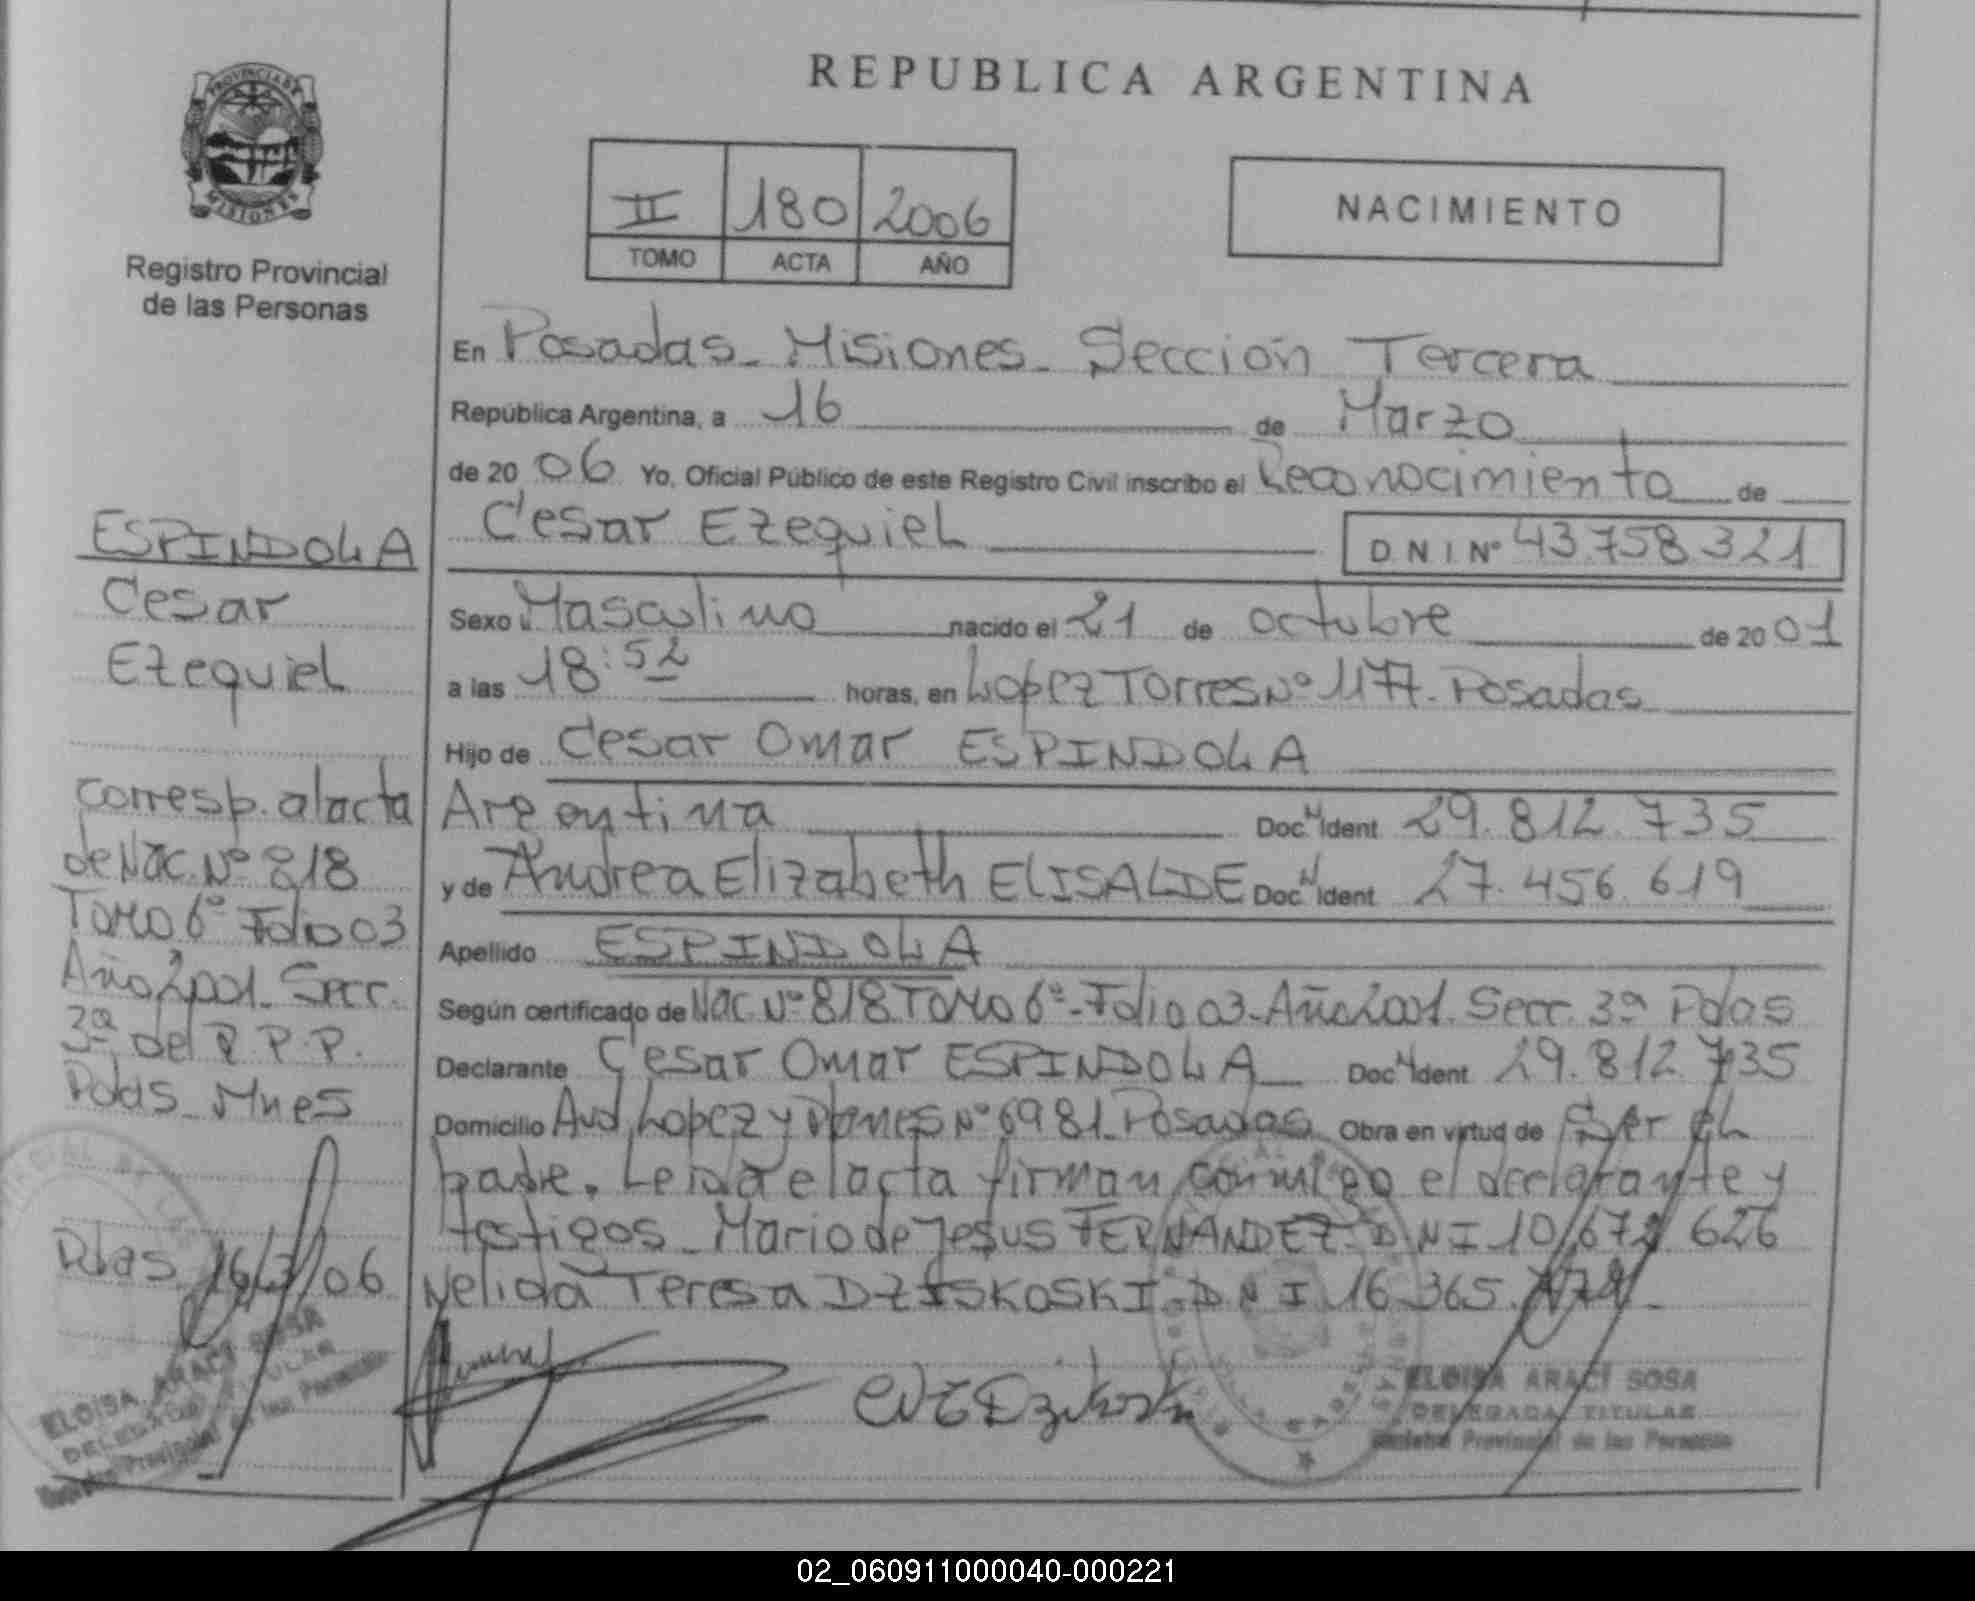 REPUBLICA ARGENTINA
PROVINCIA DE
MISIONES
Registro Provincial
de las Personas
II 180 2006
TOMO ACTA AÑO
NACIMIENTO
En Posadas - Misiones - Sección Tercera
República Argentina, a 16 de Marzo
de 20 06 Yo, Oficial Público de este Registro Civil inscribo el Reconocimiento de
Cesar Ezequiel D.N.I. Nº 43.758.321
Sexo Masculino nacido el 21 de octubre de 20 01
a las 18:52 horas, en Lopez Torres Nº 1177. Posadas
Hijo de Cesar Omar ESPINDOLA
Argentina Doc. N Ident 29.812.735
y de Andrea Elizabeth ELISALDE Doc. N Ident 27.456.619
Apellido ESPINDOLA
Según certificado de Nac. Nº 818 Tomo 6º - Folio 03 - Año 2001. Secc. 3ª Pdas
Declarante Cesar Omar ESPINDOLA Doc. N Ident 29.812.735
Domicilio Avd. Lopez y Planes Nº 6981. Posadas Obra en virtud de Ser el
padre. Leida el acta firman conmigo el declarante y
testigos - Mario de Jesus FERNANDEZ - DNI 10.672.626
Nelida Teresa DZISKOSKI - DNI 16.365.
ESPINDOLA
Cesar
Ezequiel
corresp. al acta
de Nac. Nº 818
Tomo 6º Folio 03
Año 2001. Secc.
3ª del R.P.P.
Pdas - Mnes
Pdas 16/3/06
ELOISA ARACI SOSA
DELEGADA TITULAR
Registro Provincial de las Personas
ELOISA ARACI SOSA
DELEGADA TITULAR
Registro Provincial de las Personas
02_060911000040-000221